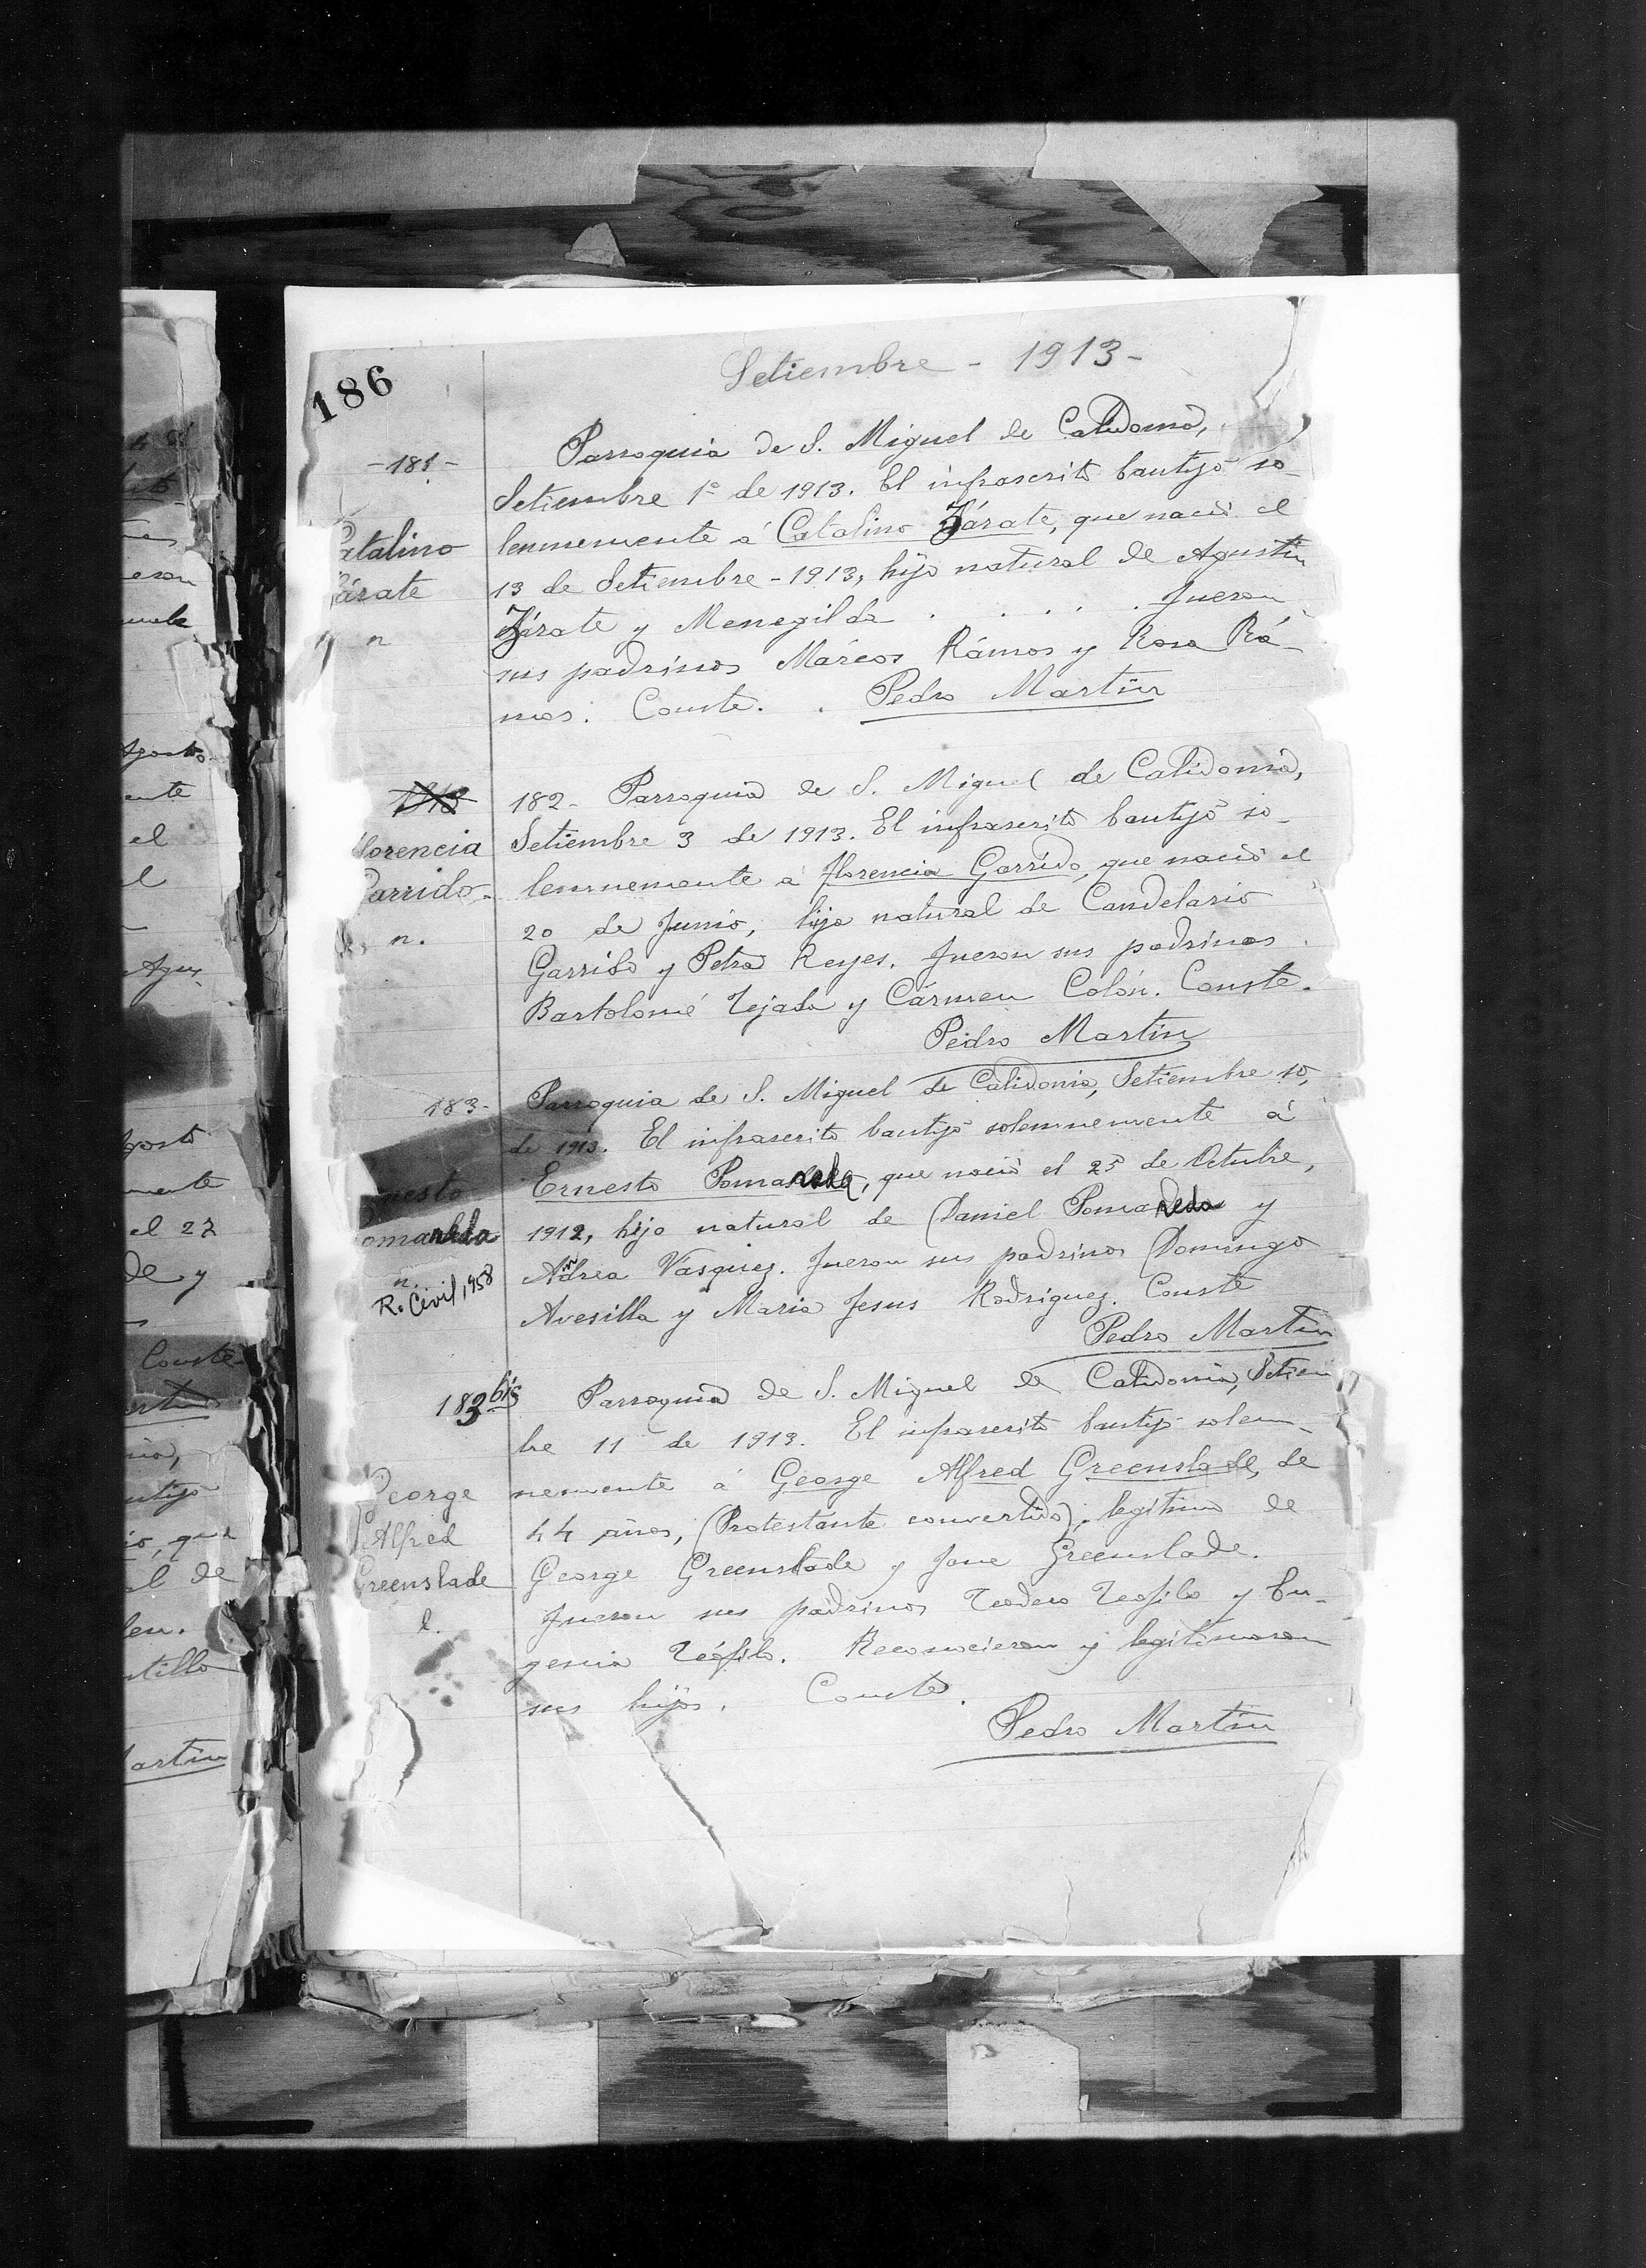 Setiembre - 1913 -
186
- 181 -
Catalino
Zárate
n
Parroquia de S. Miguel de Calidonia,
Setiembre 1º de 1913. El infrascrito bautizó so-
lemnemente á Catalino Zárate, que nació el
13 de Setiembre - 1913, hijo natural de Agustin
Zárate y Menegilda . . . . . Fueron
sus padrinos Márcos Rámos y Rosa Rá-
mos. Conste. . Pedro Martin
Florencia
Garrido.
n.
182 - Parroquia de S. Miguel de Calidonia,
Setiembre 3 de 1913. El infrascrito bautizó so-
lemnemente á Florencia Garrido, que nació el
20 de Junio, hija natural de Candelario
Garrido y Petra Reyes. Fueron sus padrinos
Bartolomé Tejada y Cármen Colón. Conste.
Pedro Martin
183 -
nesto
omareda
n.
R. Civil, 1958
Parroquia de S. Miguel de Calidonia, Setiembre 10,
de 1913. El infrascrito bautizó solemnemente á
Ernesto Pomareda, que nació el 25 de Octubre,
1912, hijo natural de Daniel Pomareda y
Andrea Vásquez. Fueron sus padrinos Domingo
Avesilla y Maria Jesus Rodriguez. Conste
Pedro Martin
183 bis
George
Alfred
Greenslade
l.
Parroquia de S. Miguel de Calidonia, Setiem
bre 11 de 1913. El infrascrito bautizó solem-
nemente á George Alfred Greenslade, de
44 años, (Protestante convertido), legítimo de
George Greenslade y Jane Greenslade.
Fueron sus padrinos Teófilo y Eu-
genia Teófilo. Reconocieron y legitimaron
sus hijos. Conste.
Pedro Martin